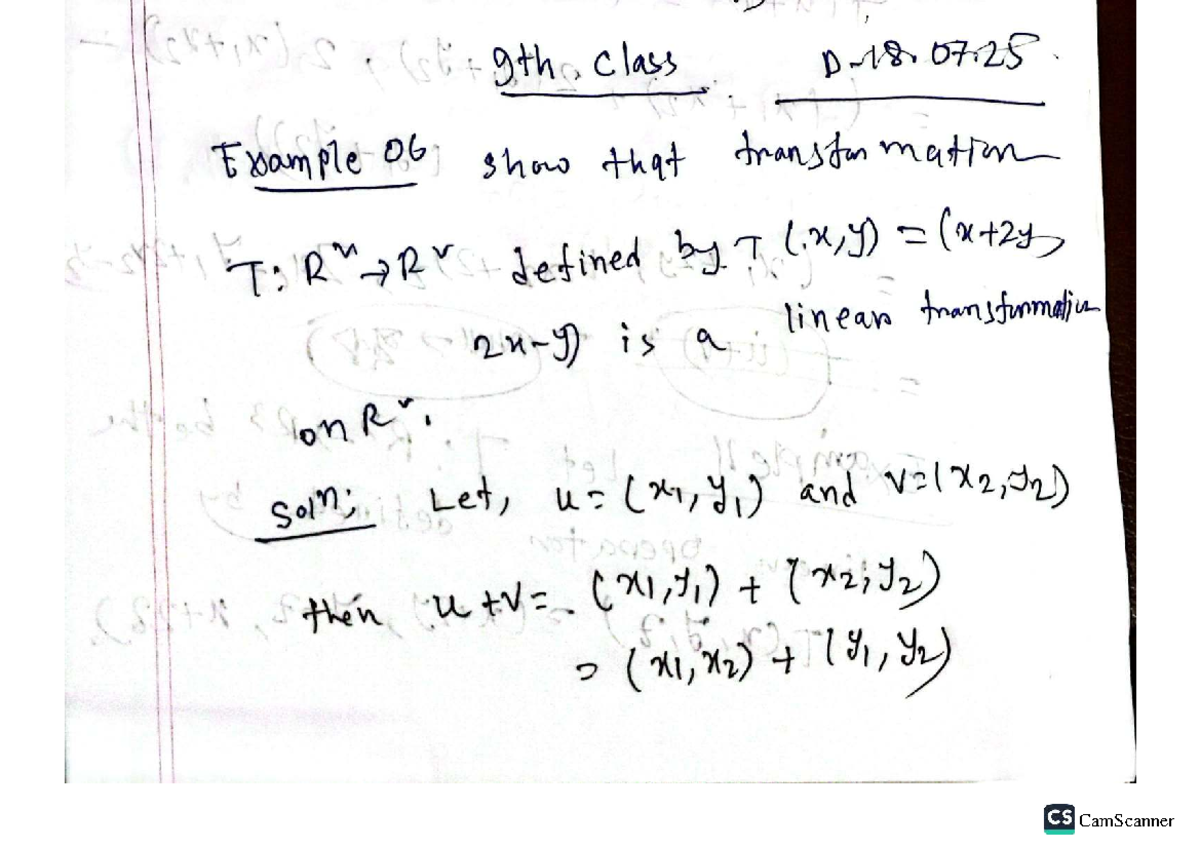 9th. class D-18.07.25.
Example 06 show that transformation
T: R² → R² defined by T (x,y) = (x+2y,
2x-y) is a linear transformation
on R².
Soln: Let, u = (x₁, y₁) and v = (x₂, y₂)
then u+v = (x₁, y₁) + (x₂, y₂)
= (x₁, x₂) + (y₁, y₂)
CS CamScanner